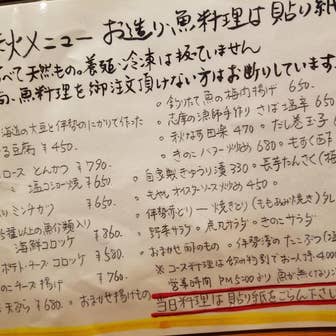 メニュー お造り、魚料理は貼り紙
べて天然もの。養殖・冷凍は扱っていません
魚料理を御注文頂けない方はお断りしています
海道の大豆と伊勢のにがりで作った
る豆腐 ￥450
ロース とんかつ ￥790
塩コショー焼 ￥650
ミンチカツ ￥650
種以上の魚介類入り
海鮮コロッケ ￥860
ポテト・チーズ コロッケ ￥580
チーズ揚げ ￥760
天ぷら ￥680
。おまかせ揚げもの
。釣りたて魚の梅肉揚げ 650
。志摩の漁師手作り さば塩辛 650
。秋なす田楽 470
。だし巻玉子
。きのこバター炒め 680
。もずく酢
。自家製きゅうり漬 330
。長芋たんざく(梅
。もやしオイスターソース炒め 450
。伊勢赤どり ー 焼きとり(ももあみ焼き)
。野菜サラダ
。きのこサラダ
。おまかせ
。伊勢湾のたこぶつ
※コース料理は
お一人 4.000
営業時間 PM5:00より 魚が無くなり
当日料理は貼り紙をごらん下さい